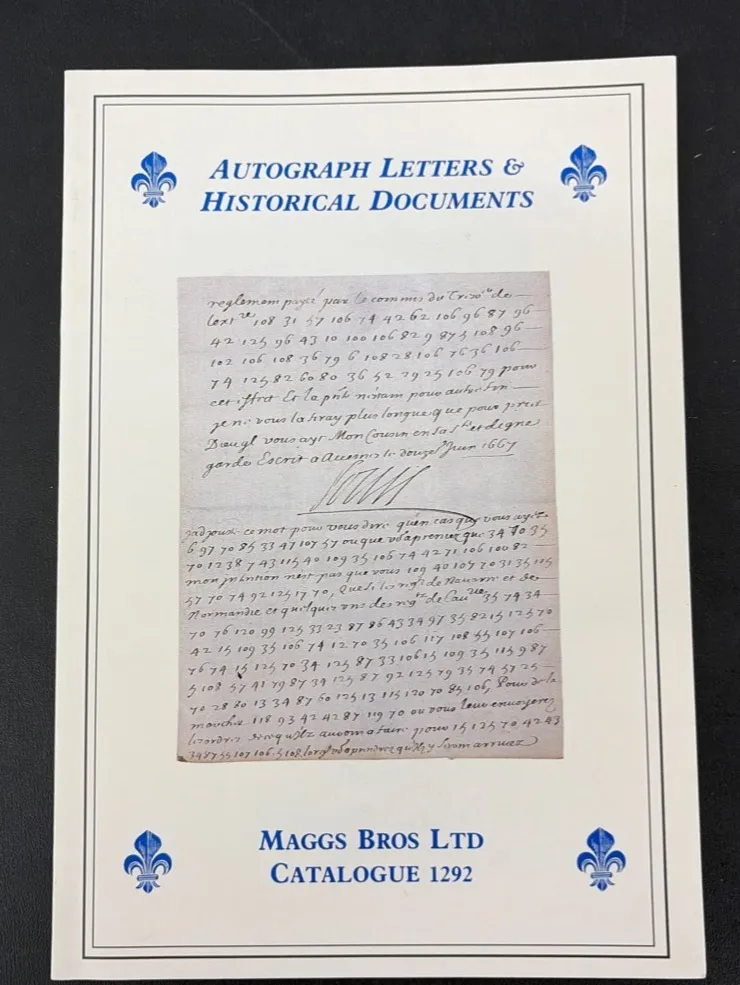 AUTOGRAPH LETTERS &
HISTORICAL DOCUMENTS
reglement payé par le commis du de
108 31 57 106 74 42 62 106 96 87 96
42 125 96 43 10 100 106 82 9 87 5 108 96
102 106 108 36 79 6 108 28 106 76 36 106
74 125 82 60 80 36 52 79 25 106 79 pour
cet effect Et la pnte n'estant pour autre fin
je ne vous la feray plus longue que pour prier
Dieu qu'il vous ayt Mon Cousin en sa ste et digne
garde Escrit a Avesnes le douze Juin 1667
Louis
J'adjouste ce mot pour vous dire qu'en cas que vous ayez
6 97 70 85 33 47 107 57 ou que vs apreniez que 34 70 35
70 12 38 7 43 115 40 109 35 106 74 42 71 106 100 82
mon intention n'est pas que vous 109 40 107 70 31 35 115
57 70 74 92 125 17 70, Que les regts de Navarre et de
Normandie et quelques uns des regts de cavrie 35 74 34
70 76 120 99 125 33 23 87 86 43 34 97 35 82 15 125 70
42 15 109 35 106 74 12 70 35 106 117 108 55 107 106
76 74 15 125 70 34 125 87 33 106 15 109 35 115 9 87
5 108 57 41 79 87 34 125 87 92 125 79 35 74 57 25
70 28 80 13 34 87 60 125 13 115 120 70 85 106, Pour de la
marche 118 93 42 42 87 119 70 ou vous leur envoyerez
les ordres de ce qu'ilz auront a faire pour 15 125 70 42 43
34 87 55 107 106 5 108 lors vs aprendrez qu'ilz y seront arrivez
MAGGS BROS LTD
CATALOGUE 1292